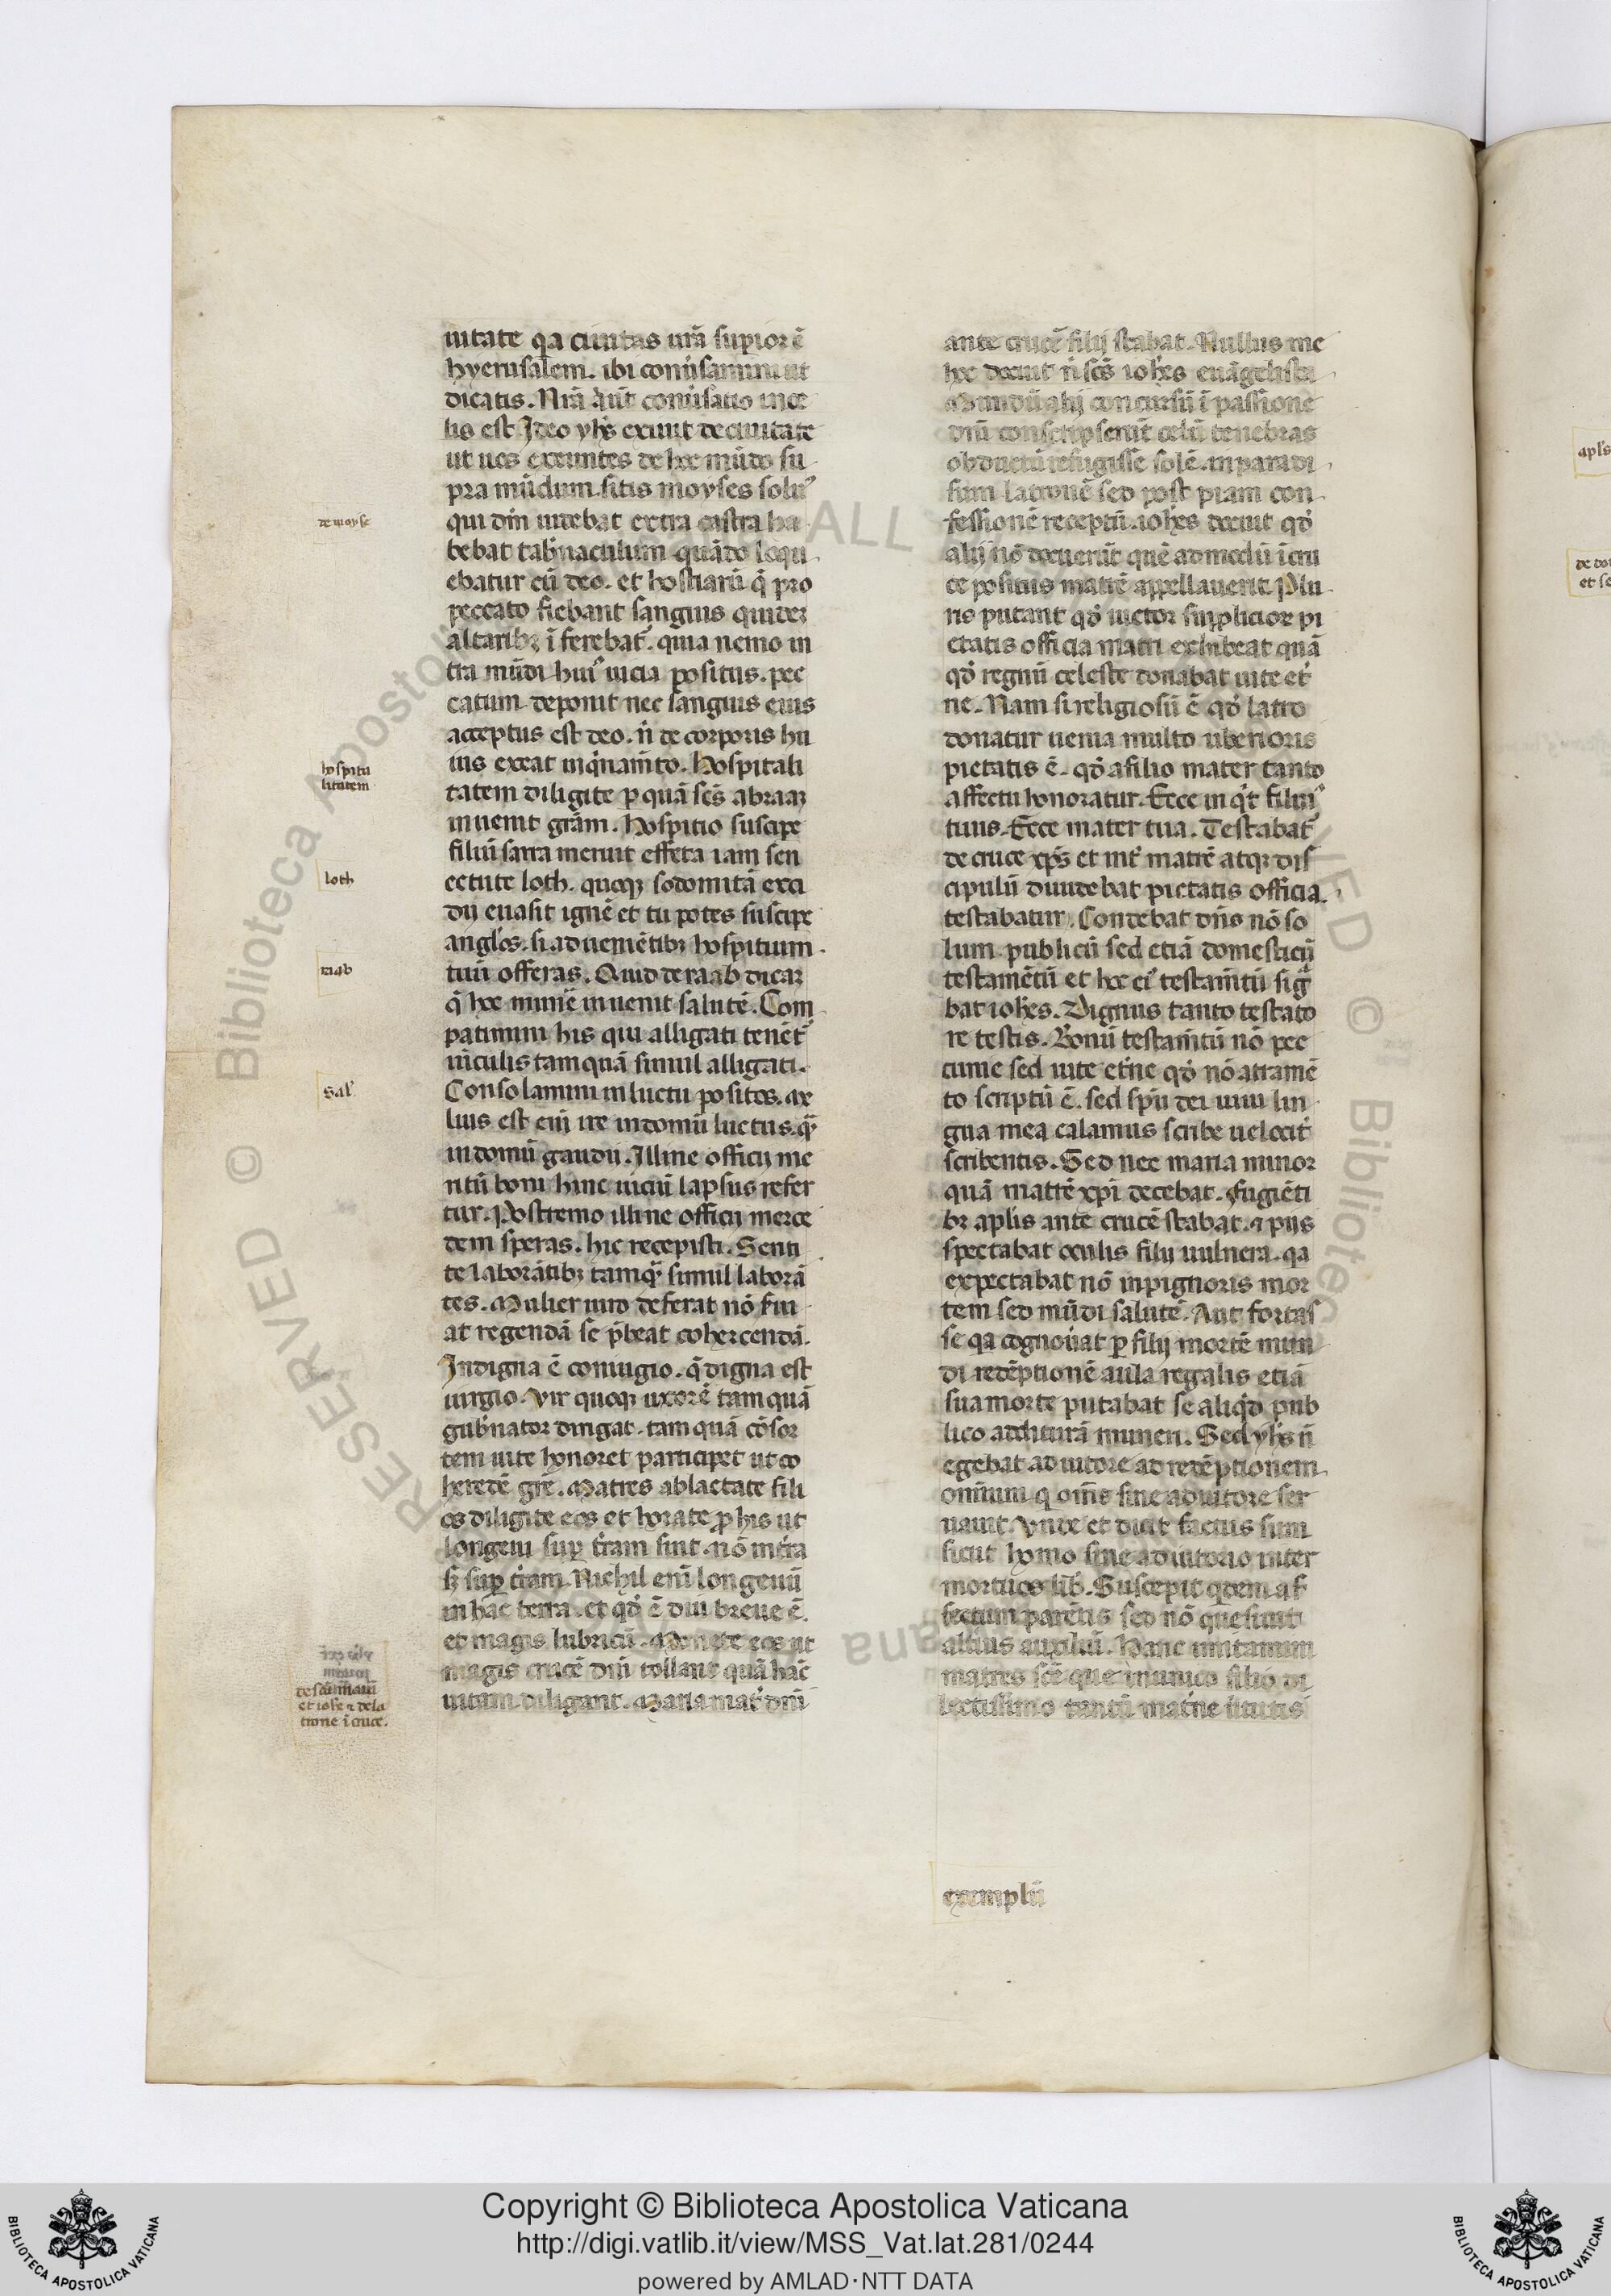 uitate qa ciuitas urā supior ē
hyerusalem. ibi conũsamini ut
dicatis. Nrā aũt conũsatio in ce
lis est. Ideo yhs exiuit de ciuitate
ut uos exeuntes de hoc mūdo su
pra mūdum sitis moyses solus
qui dm̄ uidebat extra castra ha
bebat tabnaculum quādo loqu
ebatur cū deo. et hostiarū q̄ pro
peccato fiebant sanguis quidez
altaribꝫ ī ferebat᷑. quia nemo in
tra mūdi huiꝰ uicia positus. pec
catum deponit nec sanguis eius
acceptus est deo. n̄ de corporis hu
ius exeat inq̇namto. Hospitali
tatem diligite p quā scs̄ abraaꝫ
inuenit grām. Hospitio suscipe
filiū sarra meruit effeta iam sen
ectute loth. quoqꝫ sodomitā exci
dij euasit ignē et tu potes suscipe
anglos. si aduenīetibꝫ hospitium
tuū offeras. Quid de raab dicaꝫ
q̄ hoc munē inuenit salutē. Com
patimini his qui alligati tenēt᷑
uīculis tamquā simul alligati.
Consolamini in luctu positos. me
lius est eni ire in domū luctus. q̄ꝫ
in domū gaudii. Illine officij me
ritū boni hinc uiciū lapsus refer
tur. Postremo illine officij merce
dem speras. hic recepisti. Senti
te laborātibꝫ tamqꝫ simul laborā
tes. Mulier uiro deferat nō fui
at regendā se p̄beat cohercendā.
Indigna ē coniugio. q̄ digna est
iurgio. Vir quoqꝫ uxorē tamquā
gubnator dirigat. tam quā cōsor
tem uite honoret participet ut co
heredē grē. Matres ablactate fili
os diligite eos et horate p his ut
longeui sup trram sint. nō intra
sꝫ sup trram. Nichil eni longeuū
in hac terra. et qd̄ ē diu breue ē.
et magis lubricū. Monete eos ut
magis crucē dnī tollant quā hāc
uitam diligant. Maria mat᷑ dnī
de moyse
hospita
litatem
loth
raab
Sal᷑
de scā maria
et iohe ⁊ de la
trone ī cruce.
ante crucē filij stabat. Nullus me
hoc docuit n̄ scs̄ iohes euāgelista
Mundū alij concursū ī passione
dnī conscripserūt celū tenebris
obductū refugisse solē. in paradi
sum latronē sed post piam con
fessionē receptū. iohes docuit qd̄
alij nō docuerūt quē admodū ī cru
ce positus matrē appellauerit. Plu
ris putant qd̄ uictor supplicioꝫ pi
etatis officia matri exhibeat quā
qd̄ regnū celeste donabat uite et᷑
ne. Nam si religiosū ē qd̄ latro
donatur uenia multo uberioris
pietatis ē. qd̄ a filio mater tanto
affectu honoratur. Ecce inq̇t filiuꝰ
tuus. Ecce mater tua. Testabat᷑
de cruce xps̄ et int᷑ matrē atqꝫ dis
cipulū diuidebat pietatis officia.
testabatur. Condebat dns̄ nō so
lum publicū sed etiā domesticū
testamētū et hoc eiꝰ testamtū sig̃
bat iohes. Dignus tanto testato
re testis. Bonū testamtū nō pec
cunie sed uite et᷑ne qd̄ nō atramē
to scriptū ē. sed spū dei uiui lin
gua mea calamus scribe uelocit᷑
scribentis. Sed nec maria minor
quā matrē xpī decebat. Fugiēti
bꝫ aplis ante crucē stabat. ⁊ pijs
spectabat oculis filij uulnera. qa
expectabat nō in pignoris mor
tem sed mūdi salutē. Aut fortas
se qa cognouat p filij mortē mun
di redēptionē aula regalis etiā
sua morte putabat se aliqd̄ pub
lico additurā muneri. Sed yhs n̄
egebat adiutore ad redēptionem
omnium q oms̄ sine adiutore ser
uauit. Vnde et dicit factus sum
sicut homo sine adiutorio inter
mortuos lib. Suscepit qdem af
fectum parētis sed nō quesiuit
altius auxiliū. Hanc imitamini
matres scē que in unico filio di
lectissimo tantū matne ututis
exemplū
apls